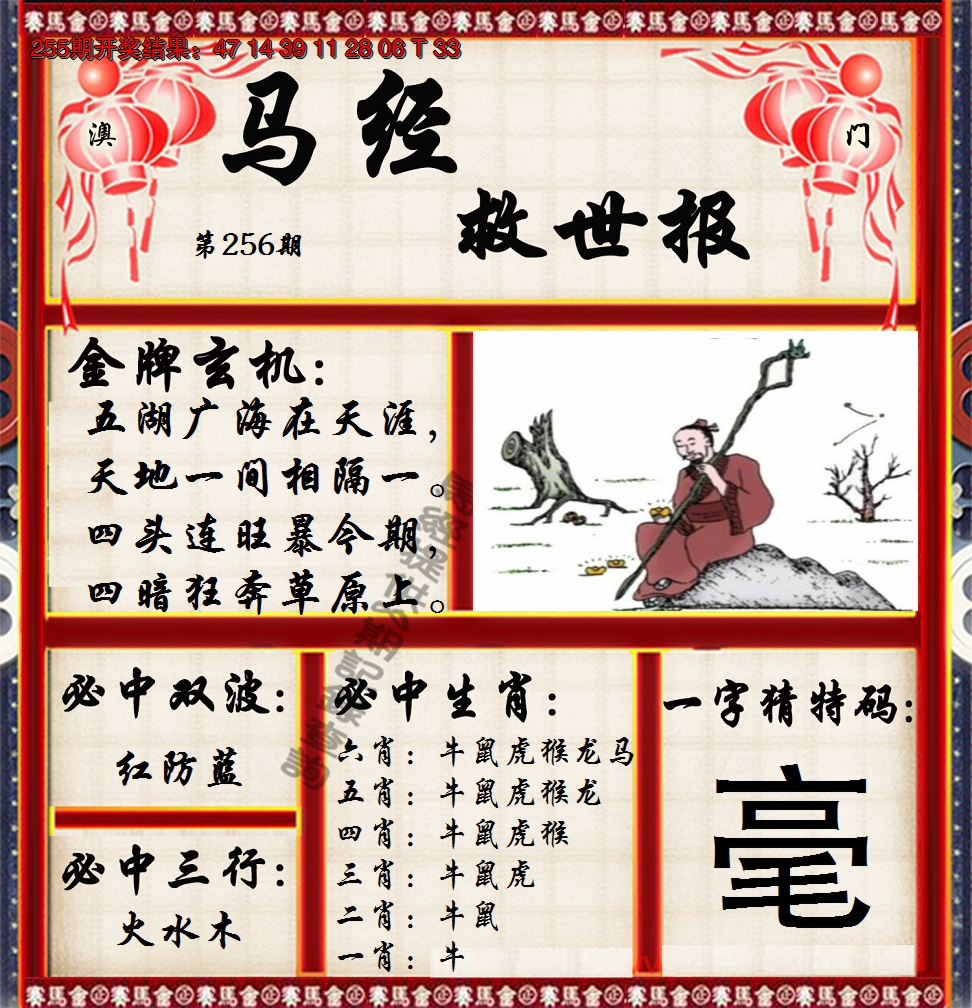 255期开奖结果：47 14 39 11 28 06 T 33
澳
门
马经
救世报
第256期
金牌玄机：
五湖广海在天涯，
天地一间相隔一。
四头连旺暴今期，
四暗狂奔草原上。
必中双波：
红防蓝
必中三行：
火水木
必中生肖：
六肖：牛鼠虎猴龙马
五肖：牛鼠虎猴龙
四肖：牛鼠虎猴
三肖：牛鼠虎
二肖：牛鼠
一肖：牛
一字猜特码：
毫